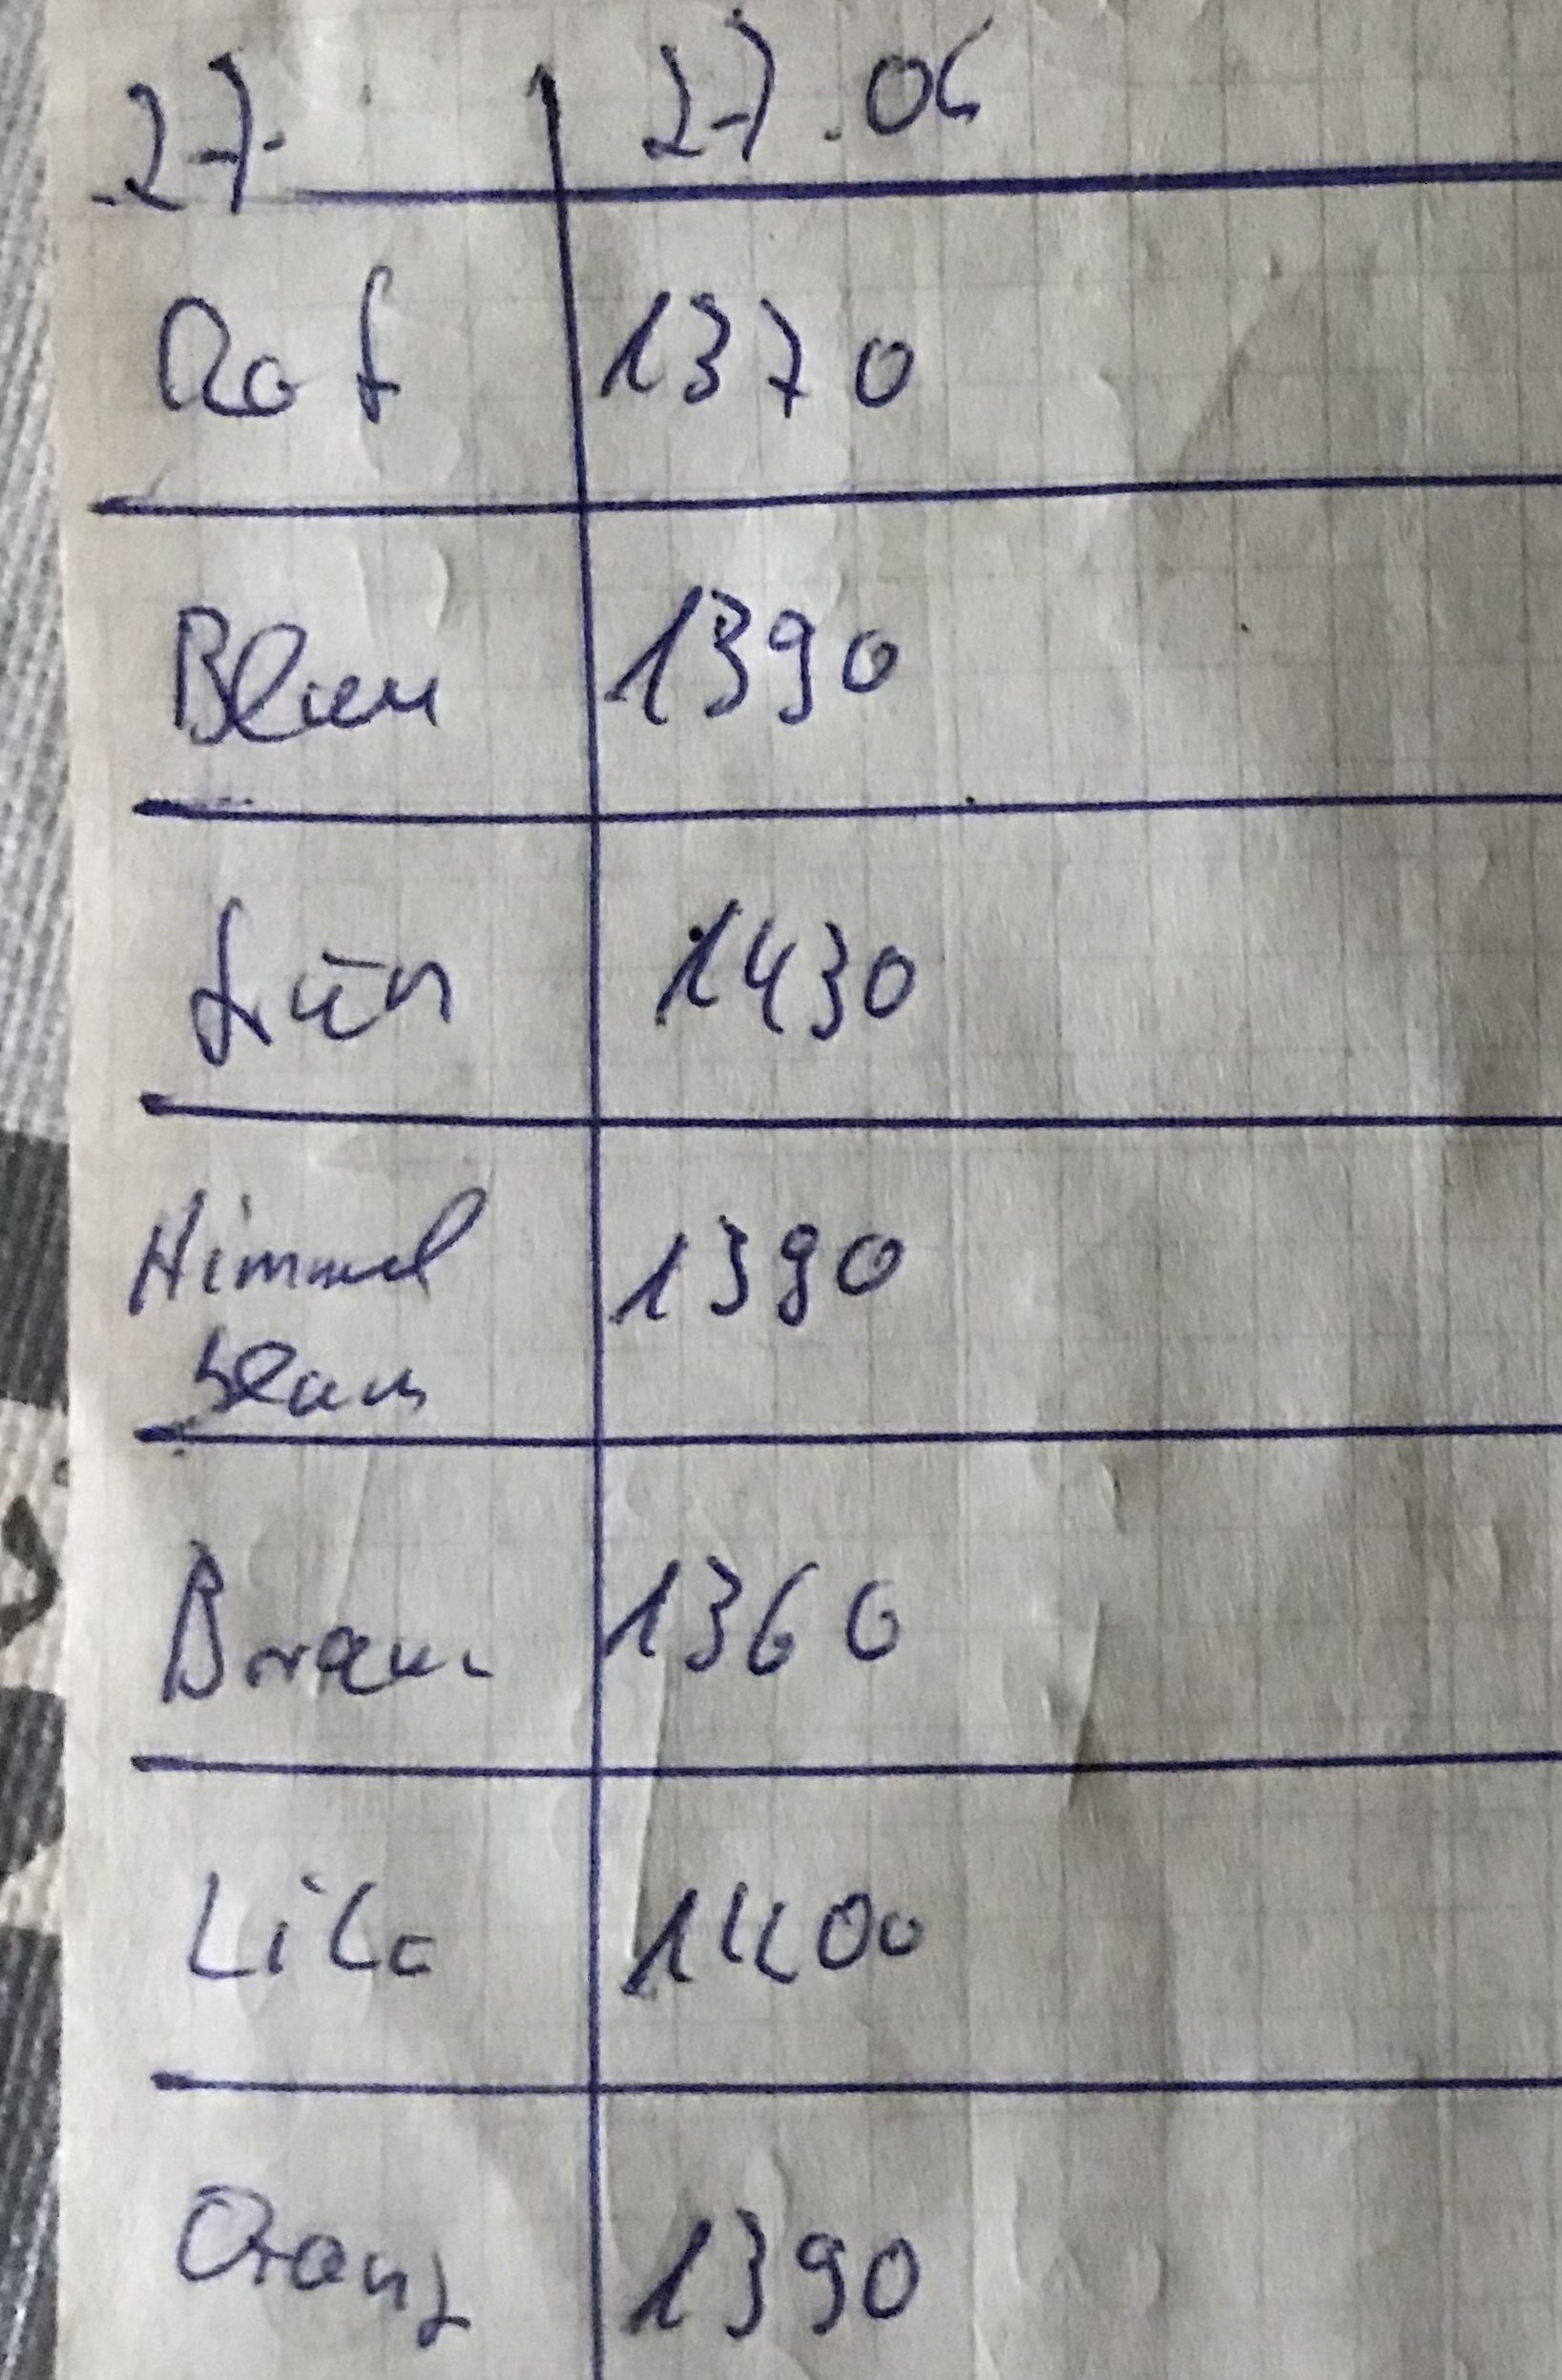 27. 27.06
Rot 1370
Blau 1390
Grün 1430
Himmel 1390
blau
Braun 1360
Lila 1400
Orang 1390